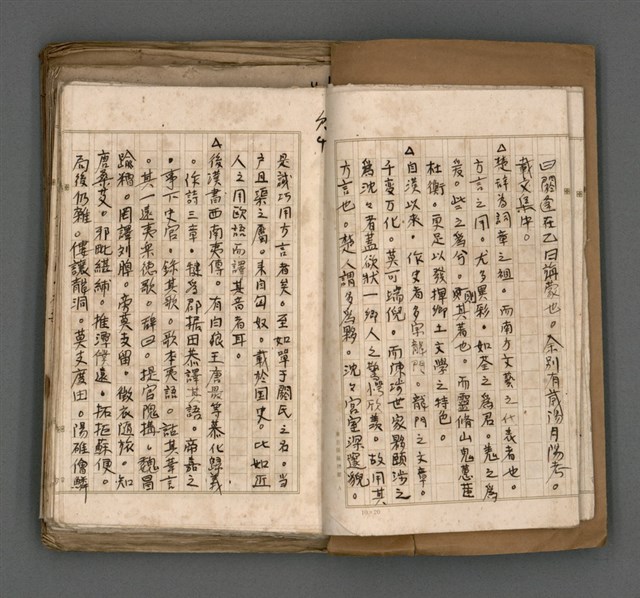 曰閼逢在乙曰旃蒙也。余別有歲陽月陽考。
載文集中。
△楚辭為詞章之祖。而南方文藝之代表者也。
方言之用。尤多異彩。如荃之為君。羌之為
爰。些之為兮。則其著也。而靈脩山鬼蕙茝
杜衡。更足以發揮鄉土文學之特色。
△自漢以來。作史者多宗龍門。龍門之文章。
千變万化。莫可端倪。而陳涉世家夥頤涉之
為沈々者蓋欲狀一鄉人之驚愕欣羨。故用其
方言也。楚人謂多為夥。沈々宮室深邃貌。
是誠巧用方言者矣。至如單于閼氏之名。當
戶且渠之屬。來自匈奴。載於國史。比如近
人之用歐語而譯其音者耳。
△後漢書西南夷傳。有白狼王唐菆等慕化歸義
。作詩三章。犍為郡掾田恭譯其語。帝嘉之
。事下史官。錄其歌。歌本夷語。註其華言
。其一遠夷樂德歌。辭曰。提官隗搆。魏冒
踰糟。罔譯劉脾。旁莫支留。徵衣隨旅。知
唐桑艾。邪毗繼𦆯。推潭僕遠。拓拒蘇便。
局後仍離。僂讓龍洞。莫支度由。陽雒僧鱗